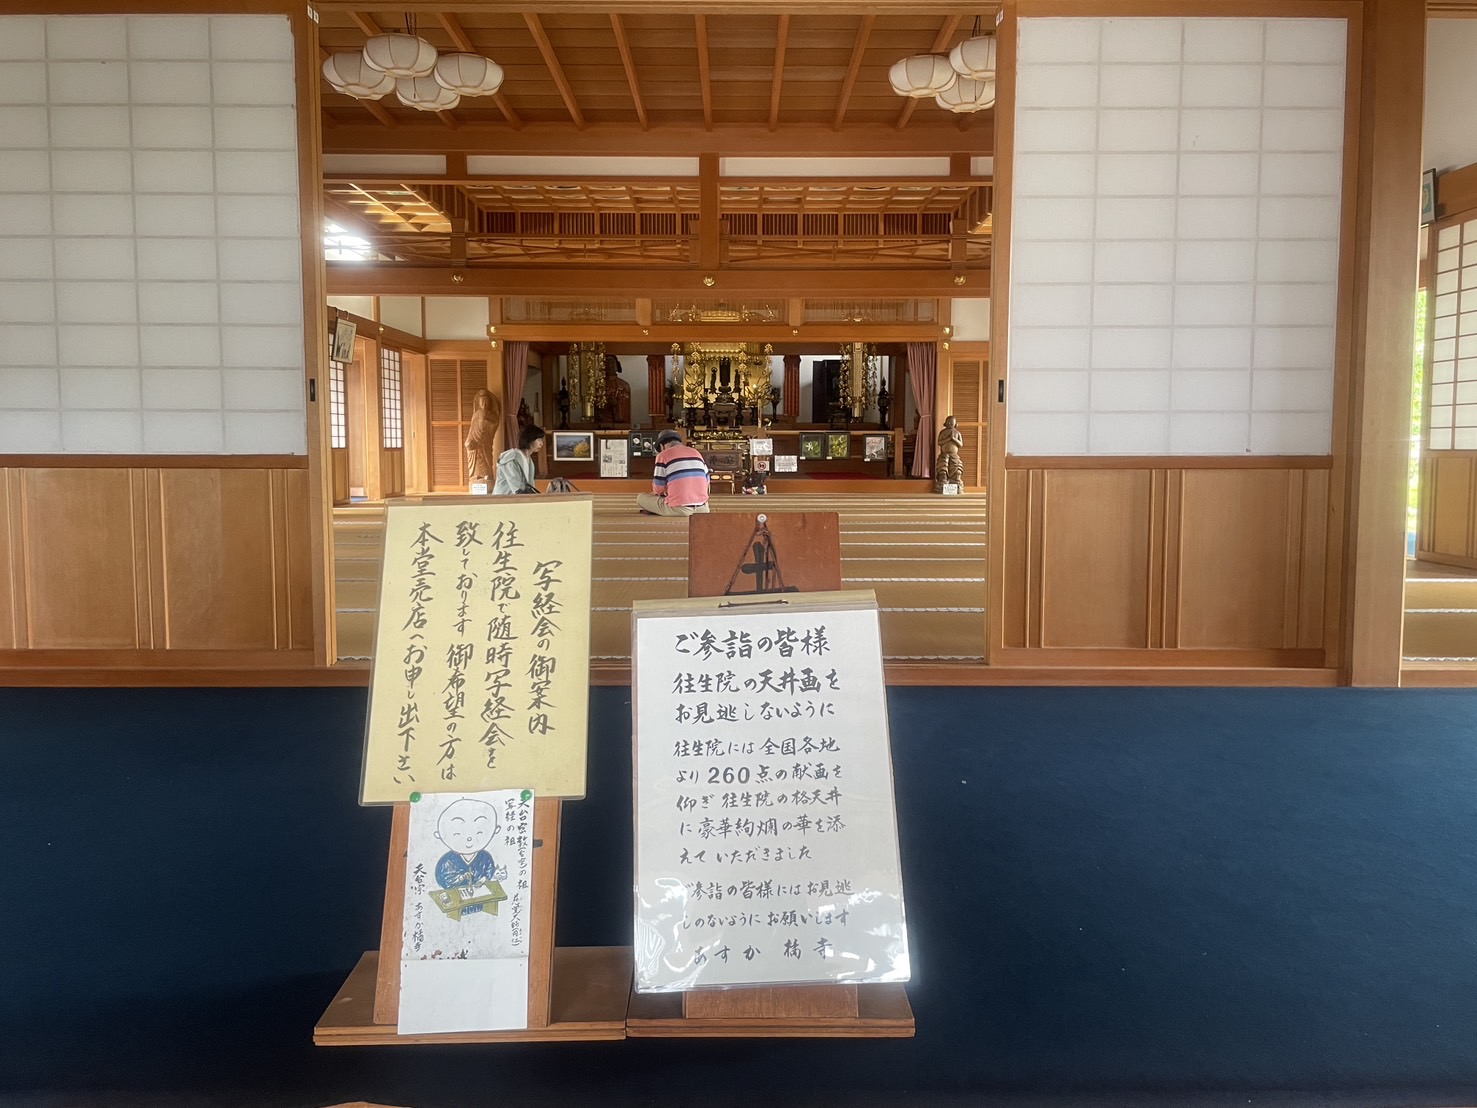 写経会の御案内
往生院で随時写経会を
致しております 御希望の方は
本堂売店へお申し出下さい
写経の祖
天台宗 あすか橘寺
ご参詣の皆様
往生院の天井画を
お見逃しないように
往生院には全国各地
より260点の献画を
仰ぎ 往生院の格天井
に豪華絢爛の華を添
えて いただきました
ご参詣の皆様にはお見逃
しのないように お願いします
あすか 橘寺